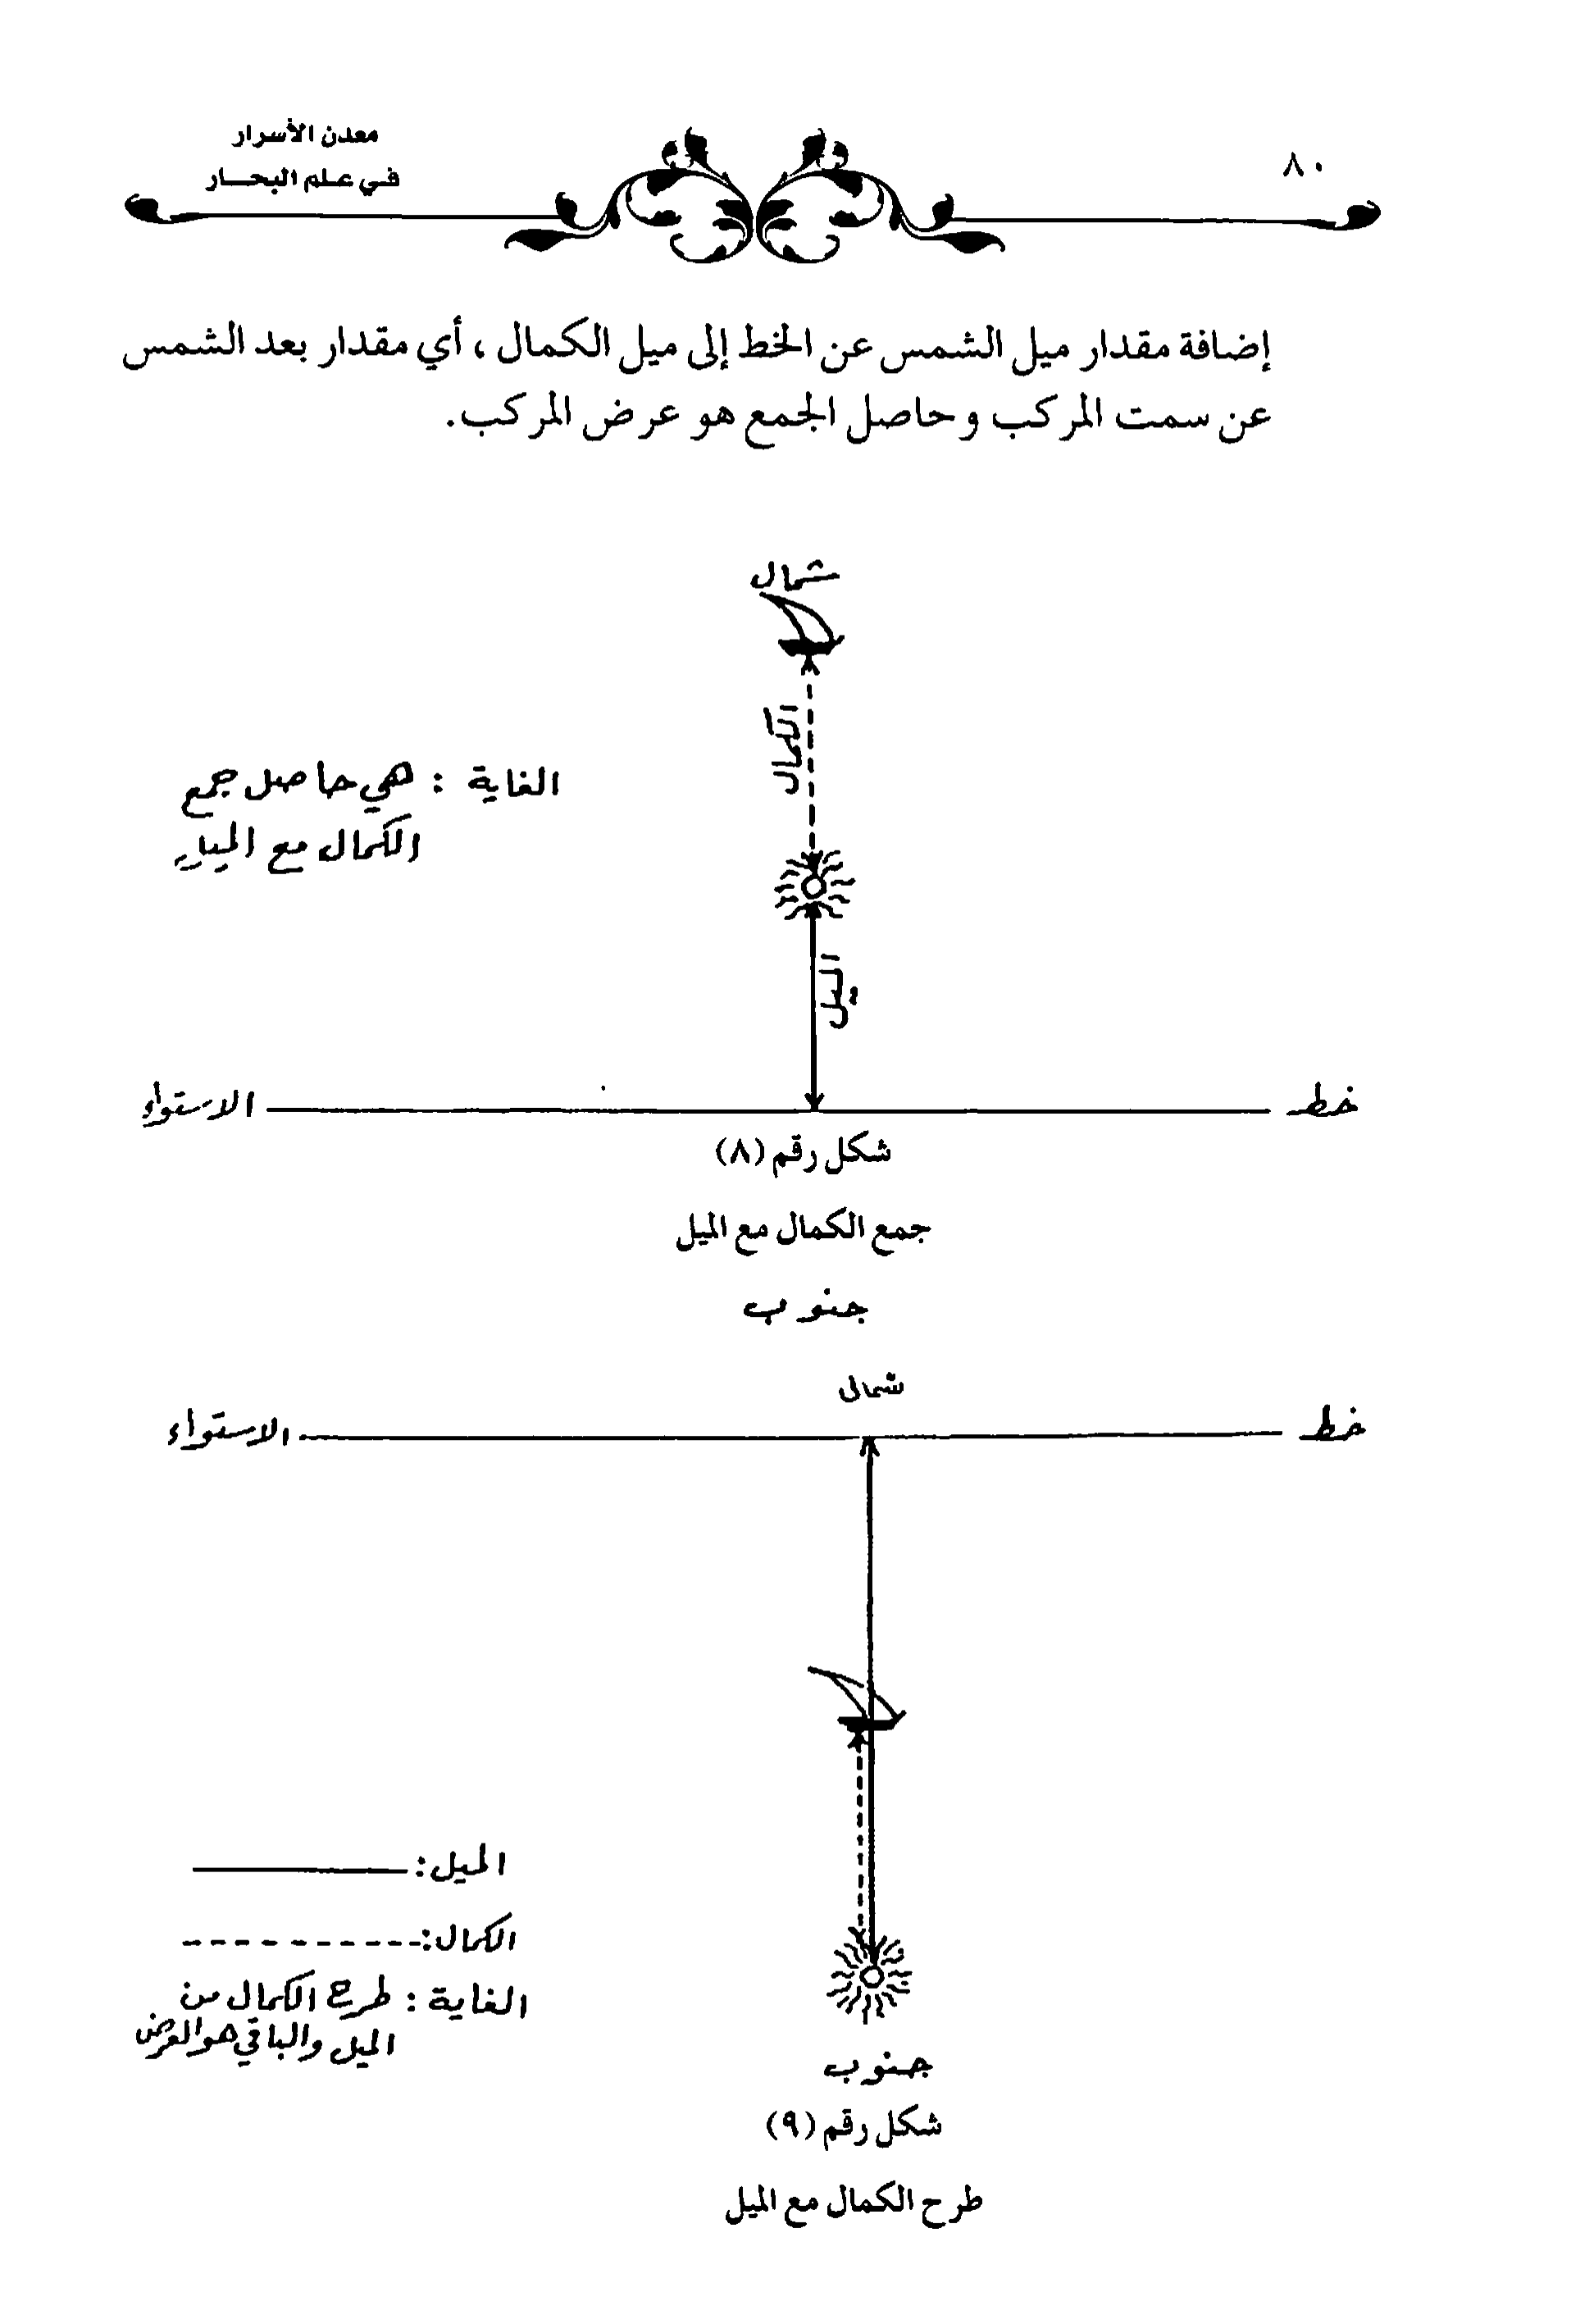 ٨٠
معدن الأسرار
في علم البحار
إضافة مقدار ميل الشمس عن الخط إلى ميل الكمال ، أي مقدار بعد الشمس
عن سمت المركب وحاصل الجمع هو عرض المركب.
شمال
الكمال
الغاية : هي حاصل جمع
الكمال مع الميل
الميل
خط الاستواء
شكل رقم (٨)
جمع الكمال مع الميل
جنوب
شمال
خط الاستواء
الميل:
الكمال:
الغاية : طرح الكمال من
الميل والباقي هو العرض
جنوب
شكل رقم (٩)
طرح الكمال مع الميل